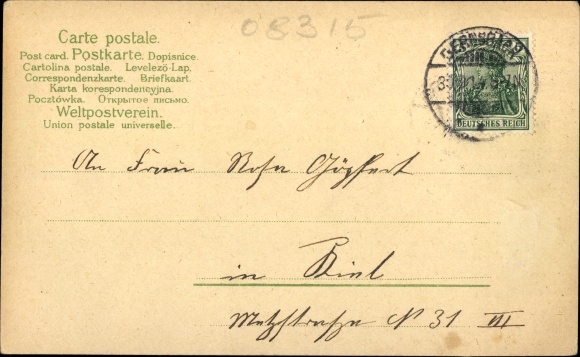 08315
Carte postale.
Post card. Postkarte. Dopisnice.
Cartolina postale. Levelező-Lap.
Correspondenzkarte. Briefkaart.
Karta korespondencyjna.
Pocztówka. Открытое письмо.
Weltpostverein.
Union postale universelle.
DEUTSCHES REICH
An Frau Rosa Göpfert
in Kiel
Metzstraße N 31 III